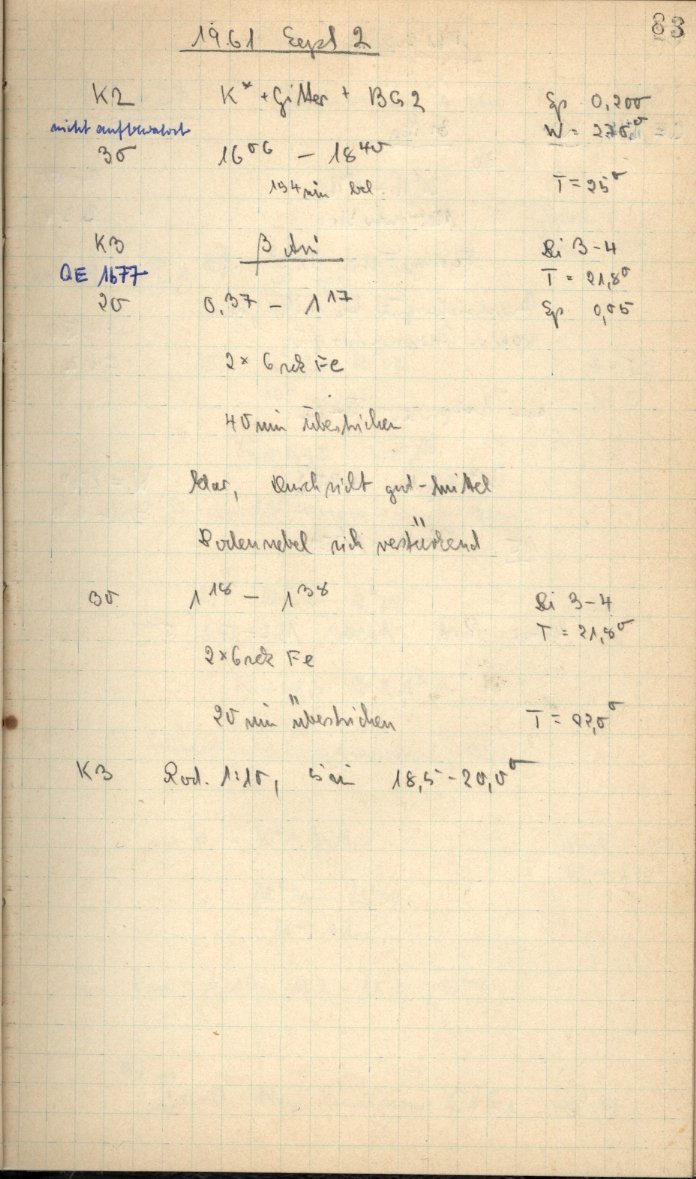 83
1961 Sept 2
K2 K* + Gitter + BG2 Sp 0,200
nicht aufbewahrt W = 270,0
30 16⁰⁶ – 18⁴⁰
154 min bel T = 25⁰
K3 β Ari Ri 3-4
QE 1677 T = 21,8⁰
20 0,37 – 1¹⁷ Sp 0,05
2 × 6 Fe
40 min überstrichen
klar, Durchsicht gut-mittel
Bodennebel sich verstärkend
30 1¹⁸ – 1³⁸ Ri 3-4
T = 21,8⁰
2 × 6 Fe
20 min überstrichen T = 22,0⁰
K3 Rod. 1:10, 5 min 18,5-20,0⁰